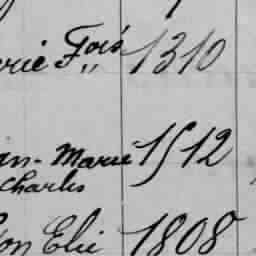 rie Fois 1310
"
an-Marie 1512
Charles
ton Elie 1808